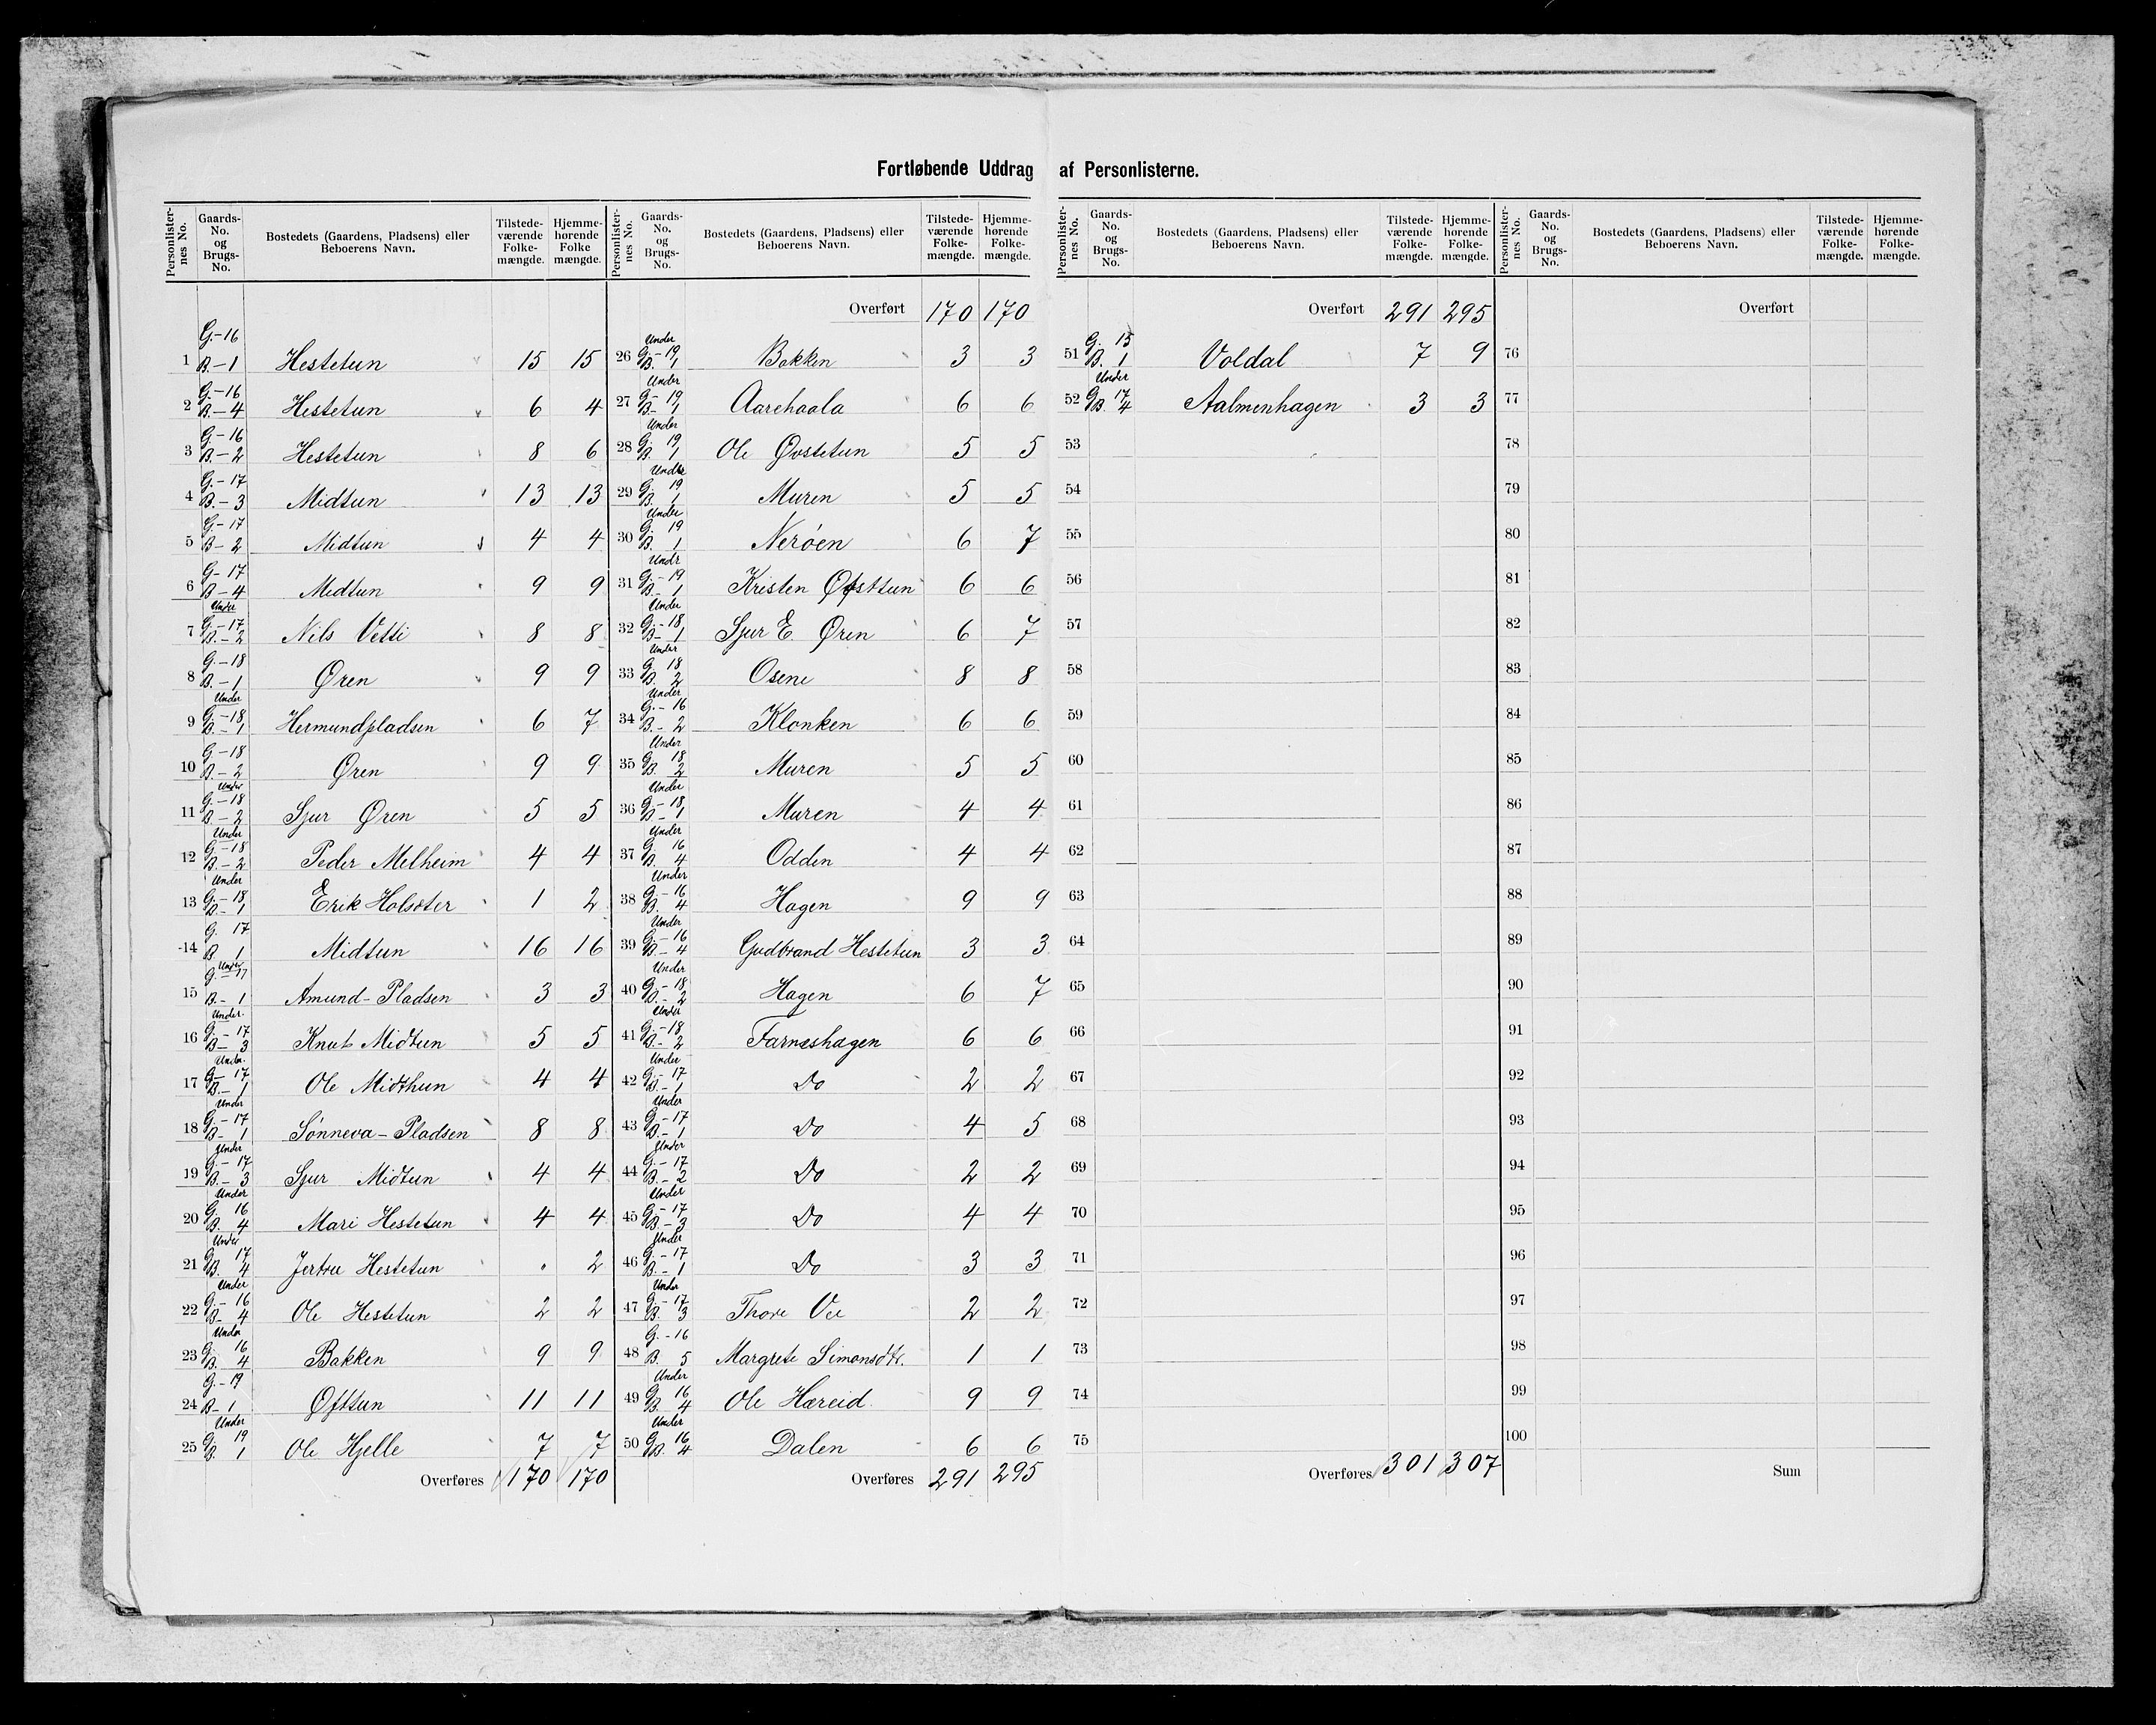 Fortløbende Uddrag af Personlisterne.
Personlister-nes No. | Gaards-No. og Brugs-No. | Bostedets (Gaardens, Pladsens) eller Beboerens Navn. | Tilstede-værende Folke-mængde. | Hjemme-hørende Folke mængde.
1 | G.-16 B.-1 | Hestetun | 15 | 15
2 | G.-16 B.-4 | Hestetun | 6 | 4
3 | G.-16 B.-2 | Hestetun | 8 | 6
4 | G.-17 B.-3 | Midtun | 13 | 13
5 | G.-17 B-2 | Midtun | 4 | 4
6 | G-17 B-4 | Midtun | 9 | 9
7 | Under G.-17 B.-2 | Nils Vetti | 8 | 8
8 | G.-18 B.-1 | Øren | 9 | 9
9 | Under G.-18 B.-1 | Hermundpladsen | 6 | 7
10 | G.-18 B.-2 | Øren | 9 | 9
11 | Under G.-18 B.-2 | Sjur Øren | 5 | 5
12 | Under G.-18 B-2 | Peder Melheim | 4 | 4
13 | Under G.-18 B-1 | Erik Holsæter | 1 | 2
14 | G. 17 B 1 | Midtun | 16 | 16
15 | Under G.-17 B-1 | Amund-Pladsen | 3 | 3
16 | Under G.-17 B-3 | Knut Midtun | 5 | 5
17 | Under G-17 B.-1 | Ole Midthun | 4 | 4
18 | Under G.-17 B-1 | Sønneva-Pladsen | 8 | 8
19 | Under G.-17 B.-3 | Sjur Midtun | 4 | 4
20 | Under G. 16 B. 4 | Mari Hestetun | 4 | 4
21 | Under G. 17 B. 4 | Jertru Hestetun | . | 2
22 | Under G.-16 B-4 | Ole Hestetun | 2 | 2
23 | Under G. 16 B. 4 | Bakken | 9 | 9
24 | G.-19 B-1 | Øftun | 11 | 11
25 | Under G. 19 B. 1 | Ole Hjelle | 7 | 7
Overføres 170 170
Personlister-nes No. | Gaards-No. og Brugs-No. | Bostedets (Gaardens, Pladsens) eller Beboerens Navn. | Tilstede-værende Folke-mængde. | Hjemme-hørende Folke-mængde.
Overført 170 170
26 | Under G.-19 B. 1 | Bakken | 3 | 3
27 | Under G.-19 B-1 | Aarehaala | 6 | 6
28 | Under G. 19 B. 1 | Ole Øvstetun | 5 | 5
29 | Under G. 19 B. 1 | Muren | 5 | 5
30 | Under G. 19 B. 1 | Nerøen | 6 | 7
31 | Undr G.-19 B.-1 | Kristen Øfsttun | 6 | 6
32 | Under G.-18 B-1 | Sjur E Øren | 6 | 7
33 | Under G. 18 B. 2 | Osene | 8 | 8
34 | Under G.-16 B.-2 | Klonken | 6 | 6
35 | Under G. 18 B. 2 | Muren | 5 | 5
36 | Under G.-18 B-1 | Muren | 4 | 4
37 | Under G. 16 B. 4 | Odden | 4 | 4
38 | Under G.-16 B. 4 | Hagen | 9 | 9
39 | Under G.-16 B.-4 | Gudbrand Hestetun | 3 | 3
40 | Under G.-18 B.-2 | Hagen | 6 | 7
41 | Under G.-18 B.-2 | Farneshagen | 6 | 6
42 | Under G.-17 B.-1 | Do | 2 | 2
43 | Under G.-17 B.-1 | Do | 4 | 5
44 | Under G.-17 B.-2 | Do | 2 | 2
45 | Under G.-17 B.-3 | Do | 4 | 4
46 | Under G.-17 B.-1 | Do | 3 | 3
47 | Under G.-17 B. 3 | Thore Ve | 2 | 2
48 | G.-16 B. 5 | Margrete Simonsdtr. | 1 | 1
49 | Under G. 16 B. 4 | Ole Hæreid | 9 | 9
50 | Under G. 16 B. 4 | Dalen | 6 | 6
Overføres 291 295
Personlister-nes No. | Gaards-No. og Brugs-No. | Bostedets (Gaardens, Pladsens) eller Beboerens Navn. | Tilstede-værende Folke-mængde. | Hjemme-hørende Folke-mængde.
Overført 291 295
51 | G. 15 B. 1 | Voldal | 7 | 9
52 | Under G. 17 B. 4 | Aalmenhagen | 3 | 3
53
54
55
56
57
58
59
60
61
62
63
64
65
66
67
68
69
70
71
72
73
74
75
Overføres 301 307
Personlister-nes No. | Gaards-No. og Brugs-No. | Bostedets (Gaardens, Pladsens) eller Beboerens Navn. | Tilstede-værende Folke-mængde. | Hjemme-hørende Folke-mængde.
Overført
76
77
78
79
80
81
82
83
84
85
86
87
88
89
90
91
92
93
94
95
96
97
98
99
100
Sum